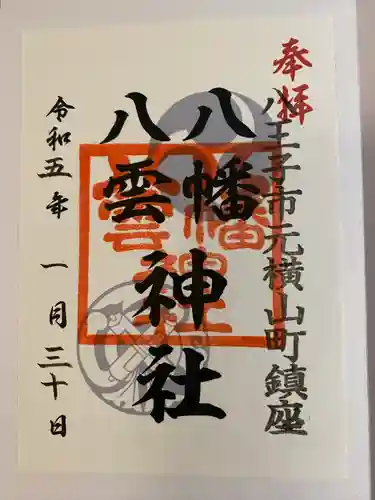 奉拝
八王子市元横山町鎮座
八幡
八雲
神社
八幡
八雲
神社
令和五年一月三十日